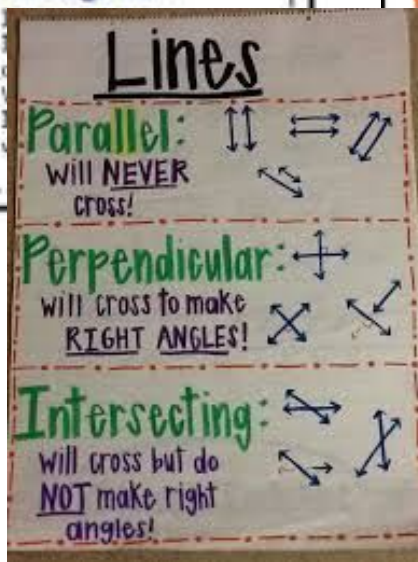 Lines
Parallel:
will NEVER
cross!
Perpendicular:
will cross to make
RIGHT ANGLES!
Intersecting:
will cross but do
NOT make right
angles!